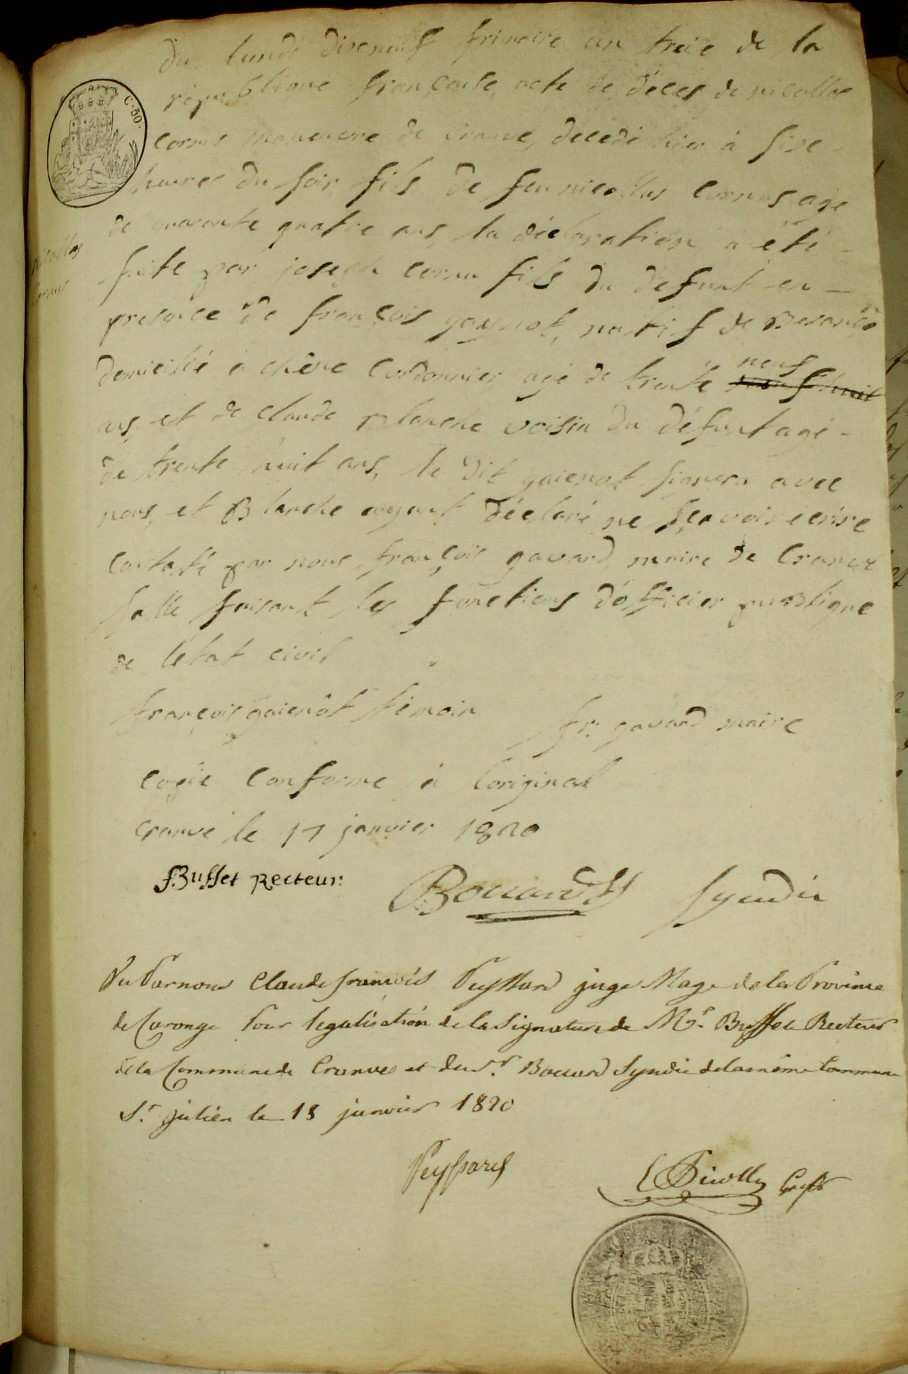 du lundi dixneuf frimaire an treize de la
république françoise, acte de déces de nicollas
cornus de cranve, decedé hier à six
heures du soir fils de feu nicollas cornus agé
de quarante quatre ans, la déclaration a été
faite par joseph cornu fils du defunt en
presence de françois gaynot, natif de Besançon
domicilié à chêne Cordonnier agé de trente neuf
ans, et de claude blanche voisin du défunt agé
de trente huit ans, le dit gaienot signera avec
nous, et Blanche ayant déclaré ne sçavoir ecrire
Constaté par nous françois gavard maire de Cranve
salle faisant les fonctions d'officier publique
de letat civil
françois gaienot témoin fr. gavard maire
C. 50.
nicollas
cornus
copie Conforme à loriginal
cranve le 17 janvier 1820
f. Buffet Recteur
Bouard syndic
Vu Par nous Claude françois Peyssard juge Mage de la Province
de Carouge Pour legalisation de la Signature de Mr. Buffet Recteur
de la Commune de Cranves et du Sr. Bouard Syndic de la même Commune
St. julien le 18 janvier 1820
Peyssard